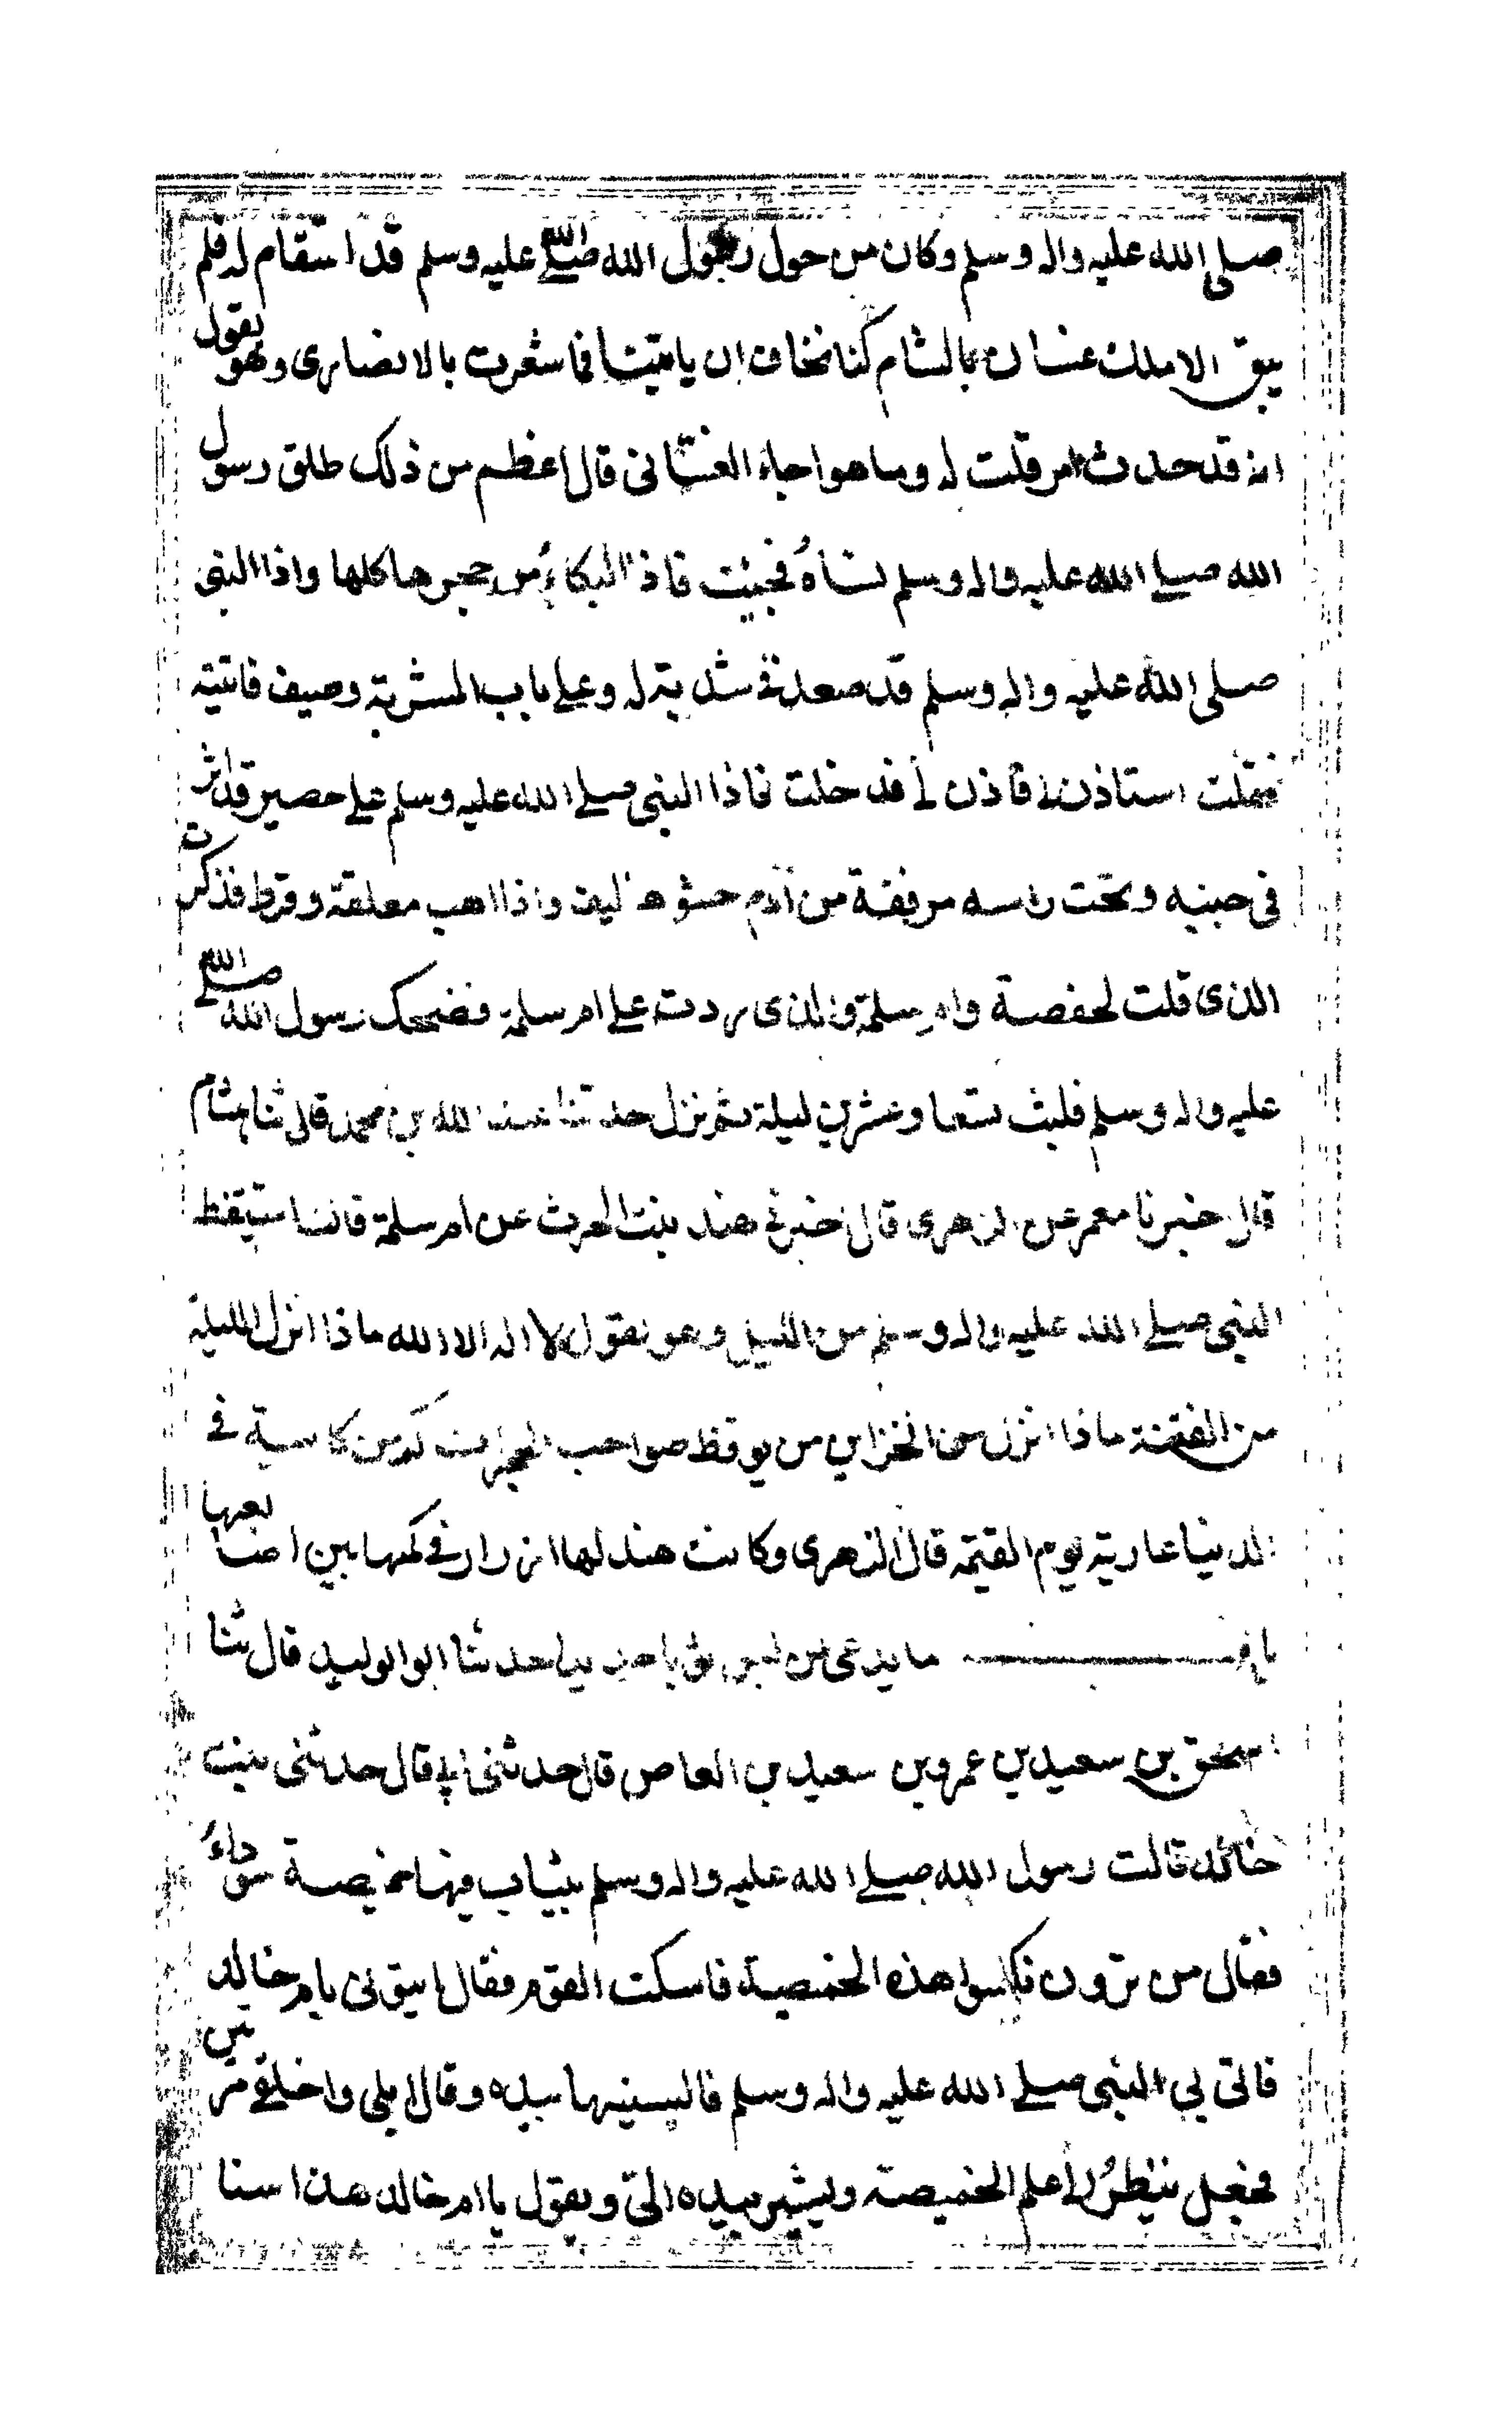 صلى الله عليه واله وسلم وكان من حول رسول الله صلى الله عليه وسلم قد استقام له فلم
يبق الا ملك غسان بالشام كنا نخاف ان ياتينا فما شعرت بالانصارى وهو يقول
انه قد حدث امر قلت له وما هو اجاء الغسانى قال اعظم من ذلك طلق رسول
الله صلى الله عليه واله وسلم نساءه فجئت فاذا البكاء من حجرها كلها واذا النبى
صلى الله عليه واله وسلم قد صعد فى مشربة له وعلى باب المشربة وصيف فاتيته
فقلت استاذن لى فاذن لى فدخلت فاذا النبى صلى الله عليه وسلم على حصير قد اثر
فى جنبه وتحت راسه مرفقة من ادم حشوها ليف واذا اهب معلقة وقرظ فذكرت
الذى قلت لحفصة وام سلمة والذى ردت على ام سلمة فضحك رسول الله صلى الله
عليه واله وسلم فلبث تسعا وعشرين ليلة ثم نزل حدثنا عبد الله بن محمد قال ثنا هشام
قال اخبرنا معمر عن الزهرى قال اخبرتنى هند بنت الحرث عن ام سلمة قالت استيقظ
النبى صلى الله عليه واله وسلم من الليل وهو يقول لا اله الا الله ماذا انزل الليلة
من الفتنة ماذا انزل من الخزاين من يوقظ صواحب الحجرات كم من كاسية فى
الدنيا عارية يوم القيمة قال الزهرى وكانت هند لها ازرار فى كمها بين اصابعها
باب ما يدعى لمن لبس ثوبا جديدا حدثنا ابو الوليد قال ثنا
اسحق بن سعيد بن عمرو بن سعيد بن العاص قال حدثنى ابى قال حدثتنى بنت
خالد قالت رسول الله صلى الله عليه واله وسلم بثياب فيها خميصة سوداء
فقال من ترون نكسوا هذه الخميصة فاسكت القوم فقال ايتونى بام خالد
فاتى بى النبى صلى الله عليه واله وسلم فالبسنيها بيده وقال ابلى واخلقى مرتين
فجعل ينظر الى علم الخميصة ويشير بيده الى ويقول يا ام خالد هذا سنا